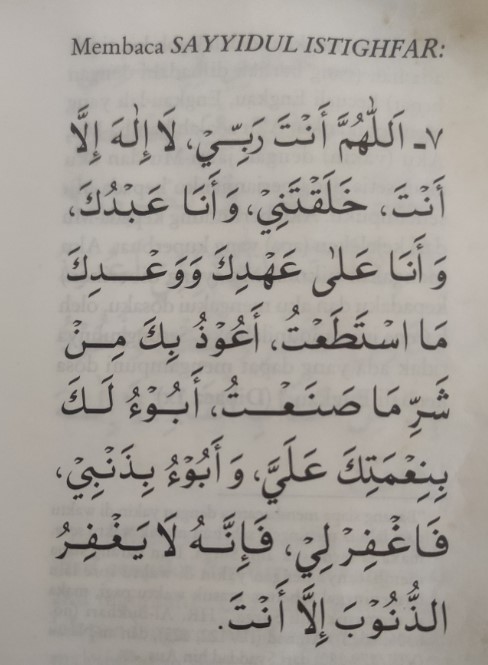 Membaca SAYYIDUL ISTIGHFAR:
٧ـ اَللّٰهُمَّ أَنْتَ رَبِّـيْ، لَا إِلٰهَ إِلَّا
أَنْتَ، خَلَقْتَنِيْ، وَأَنَا عَبْدُكَ،
وَأَنَا عَلىٰ عَهْدِكَ وَوَعْـدِكَ
مَا اسْتَطَعْتُ، أَعُوْذُ بِكَ مِـنْ
شَرِّ مَا صَنَعْـتُ، أَبُـوْءُ لَـكَ
بِنِعْمَتِكَ عَلَيَّ، وَأَبُوْءُ بِذَنْبِيْ،
فَاغْفِرْ لِيْ، فَإِنَّـهُ لَا يَغْـفِرُ
الذُّنُوْبَ إِلَّا أَنْتَ.